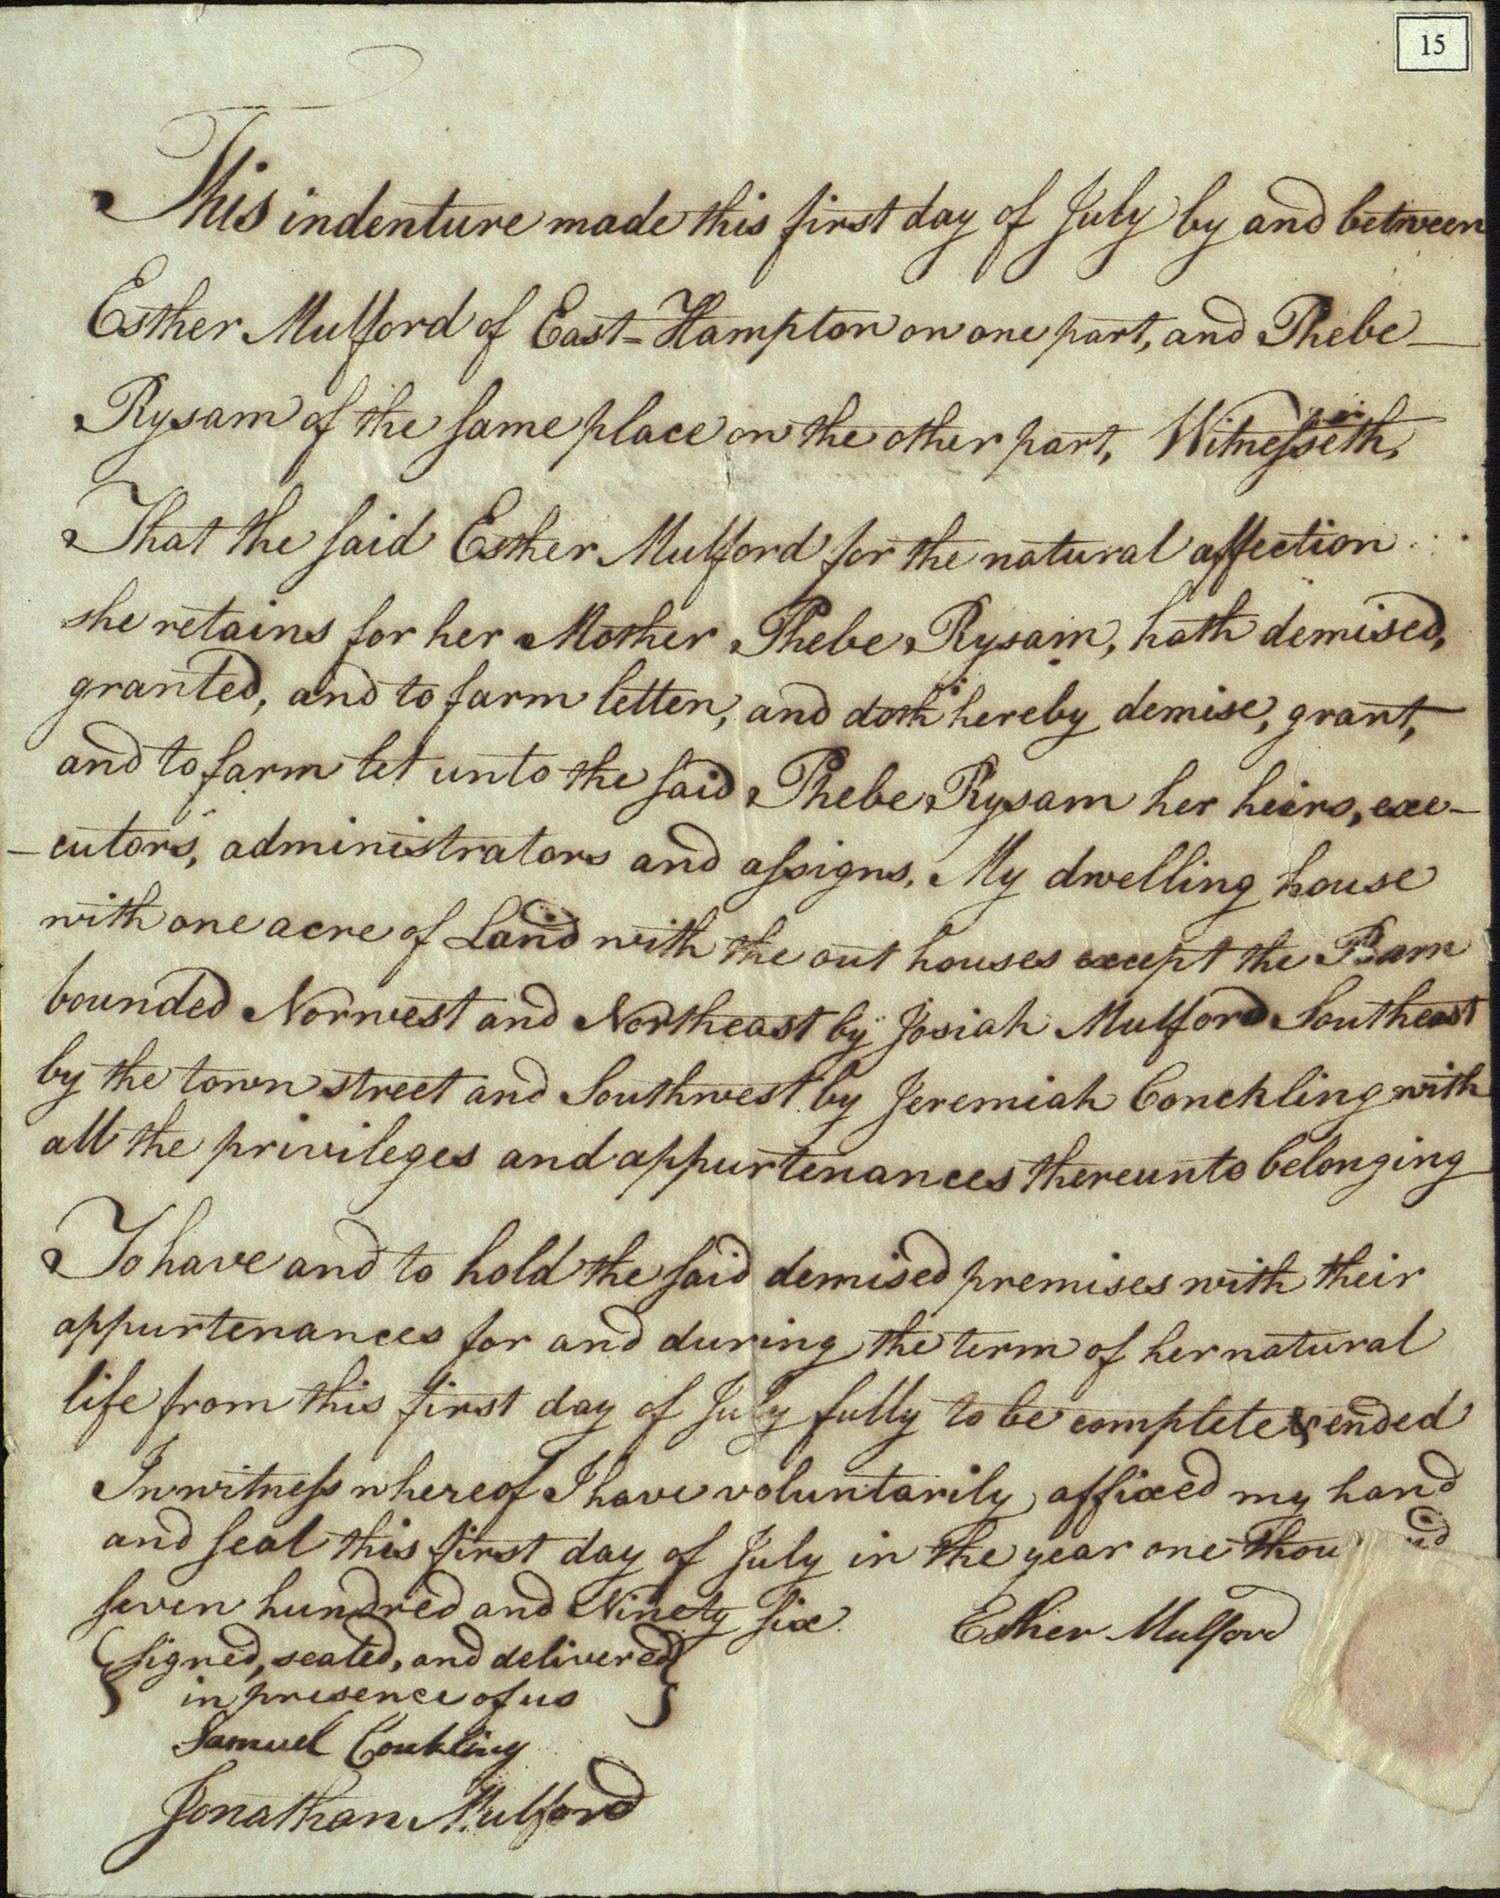 15
This indenture made this first day of July by and between
Esther Mulford of East=Hampton on one part, and Phebe
Rysam of the same place on the other part, Witnesseth,
That the said Esther Mulford for the natural affection
she retains for her Mother Phebe Rysam, hath demised,
granted, and to farm letten, and doth hereby demise, grant,
and to farm let unto the said Phebe Rysam her heirs, exe-
-cutors, administrators and assigns. My dwelling house
with one acre of Land with the out houses except the Barn
bounded Norwest and Northeast by Josiah Mulford Southeast
by the town street and Southwest by Jeremiah Conckling with
all the privileges and appurtenances thereunto belonging
To have and to hold the said demised premises with their
appurtenances for and during the term of her natural
life from this first day of July fully to be complete & ended
In witness whereof I have voluntarily affixed my hand
and seal this first day of July in the year one thou nd
seven hundred and Ninety six Esther Mulford
{ signed, sealed, and delivered }
in presence of us
Samuel Conkling
Jonathan Mulford